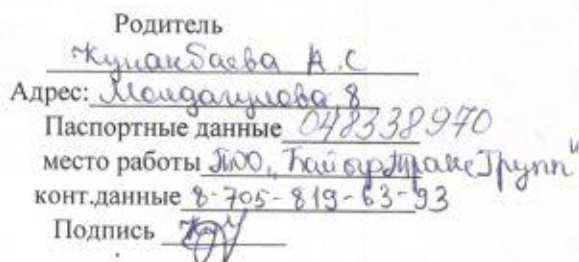 Родитель
Кунанбаева А.С
Адрес: Молдагулова, 8
Паспортные данные 048338970
место работы ТОО „БайырТрансГрупп"
конт.данные 8-705-819-63-93
Подпись